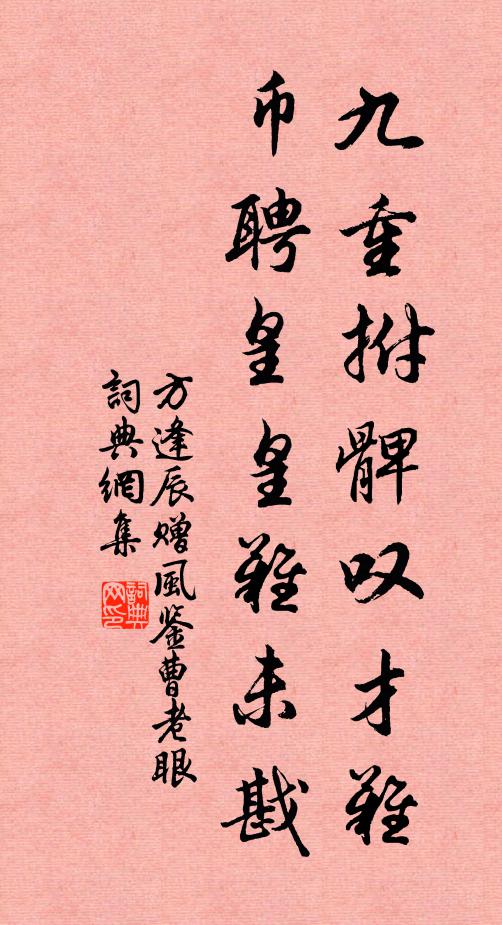 九重拊髀叹才難
币聘皇皇難未戡
方逢辰赠風鉴曹老眼
詞典網集
詞典网印